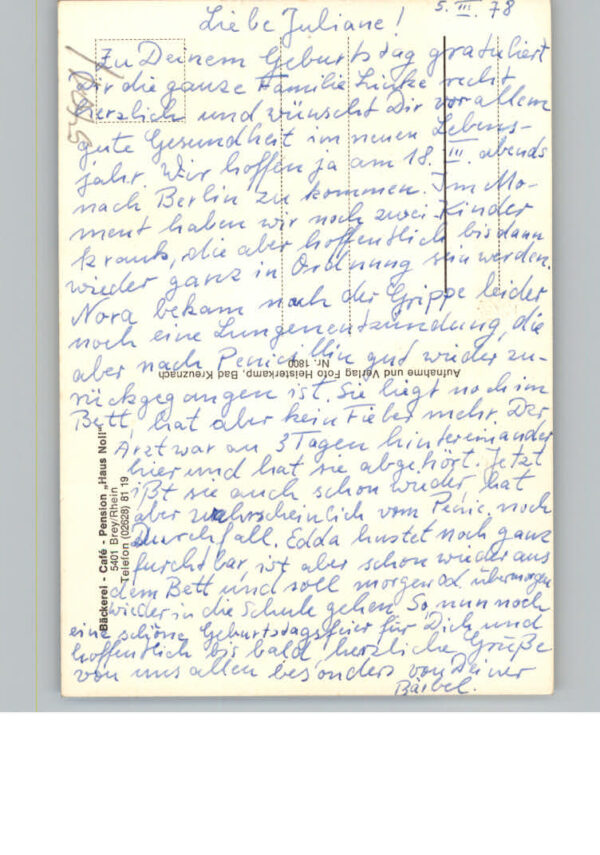 5. III. 78
Liebe Juliane!
Zu Deinem Geburtstag gratuliert
Dir die ganze Familie Linke recht
herzlich und wünscht Dir vor allem
gute Gesundheit im neuen Lebens-
jahr. Wir hoffen ja am 18. III. abends
nach Berlin zu kommen. Im Mo-
ment haben wir noch zwei Kinder
krank, die aber hoffentlich bis dann
wieder ganz in Ordnung sein werden.
Nora bekam nach der Grippe leider
noch eine Lungenentzündung, die
aber nach Penicillin gut wieder zu-
rückgegangen ist. Sie liegt noch im
Bett, hat aber kein Fieber mehr. Der
Arzt war an 3 Tagen hintereinander
hier und hat sie abgehört. Jetzt
ißt sie auch schon wieder, hat
aber wahrscheinlich vom Penic. noch
Durchfall. Edda hustet noch ganz
furchtbar, ist aber schon wieder aus
dem Bett und soll morgen od. übermorgen
wieder in die Schule gehen. So, nun noch
eine schöne Geburtstagsfeier für Dich und
hoffentlich bis bald, herzliche Grüße
von uns allen besonders von Deiner
Bärbel.
Bäckerei - Café - Pension „Haus Noll"
5401 Brey/Rhein
Telefon (02628) 81 19
Aufnahme und Verlag Foto Heisterkamp, Bad Kreuznach
Nr. 1800